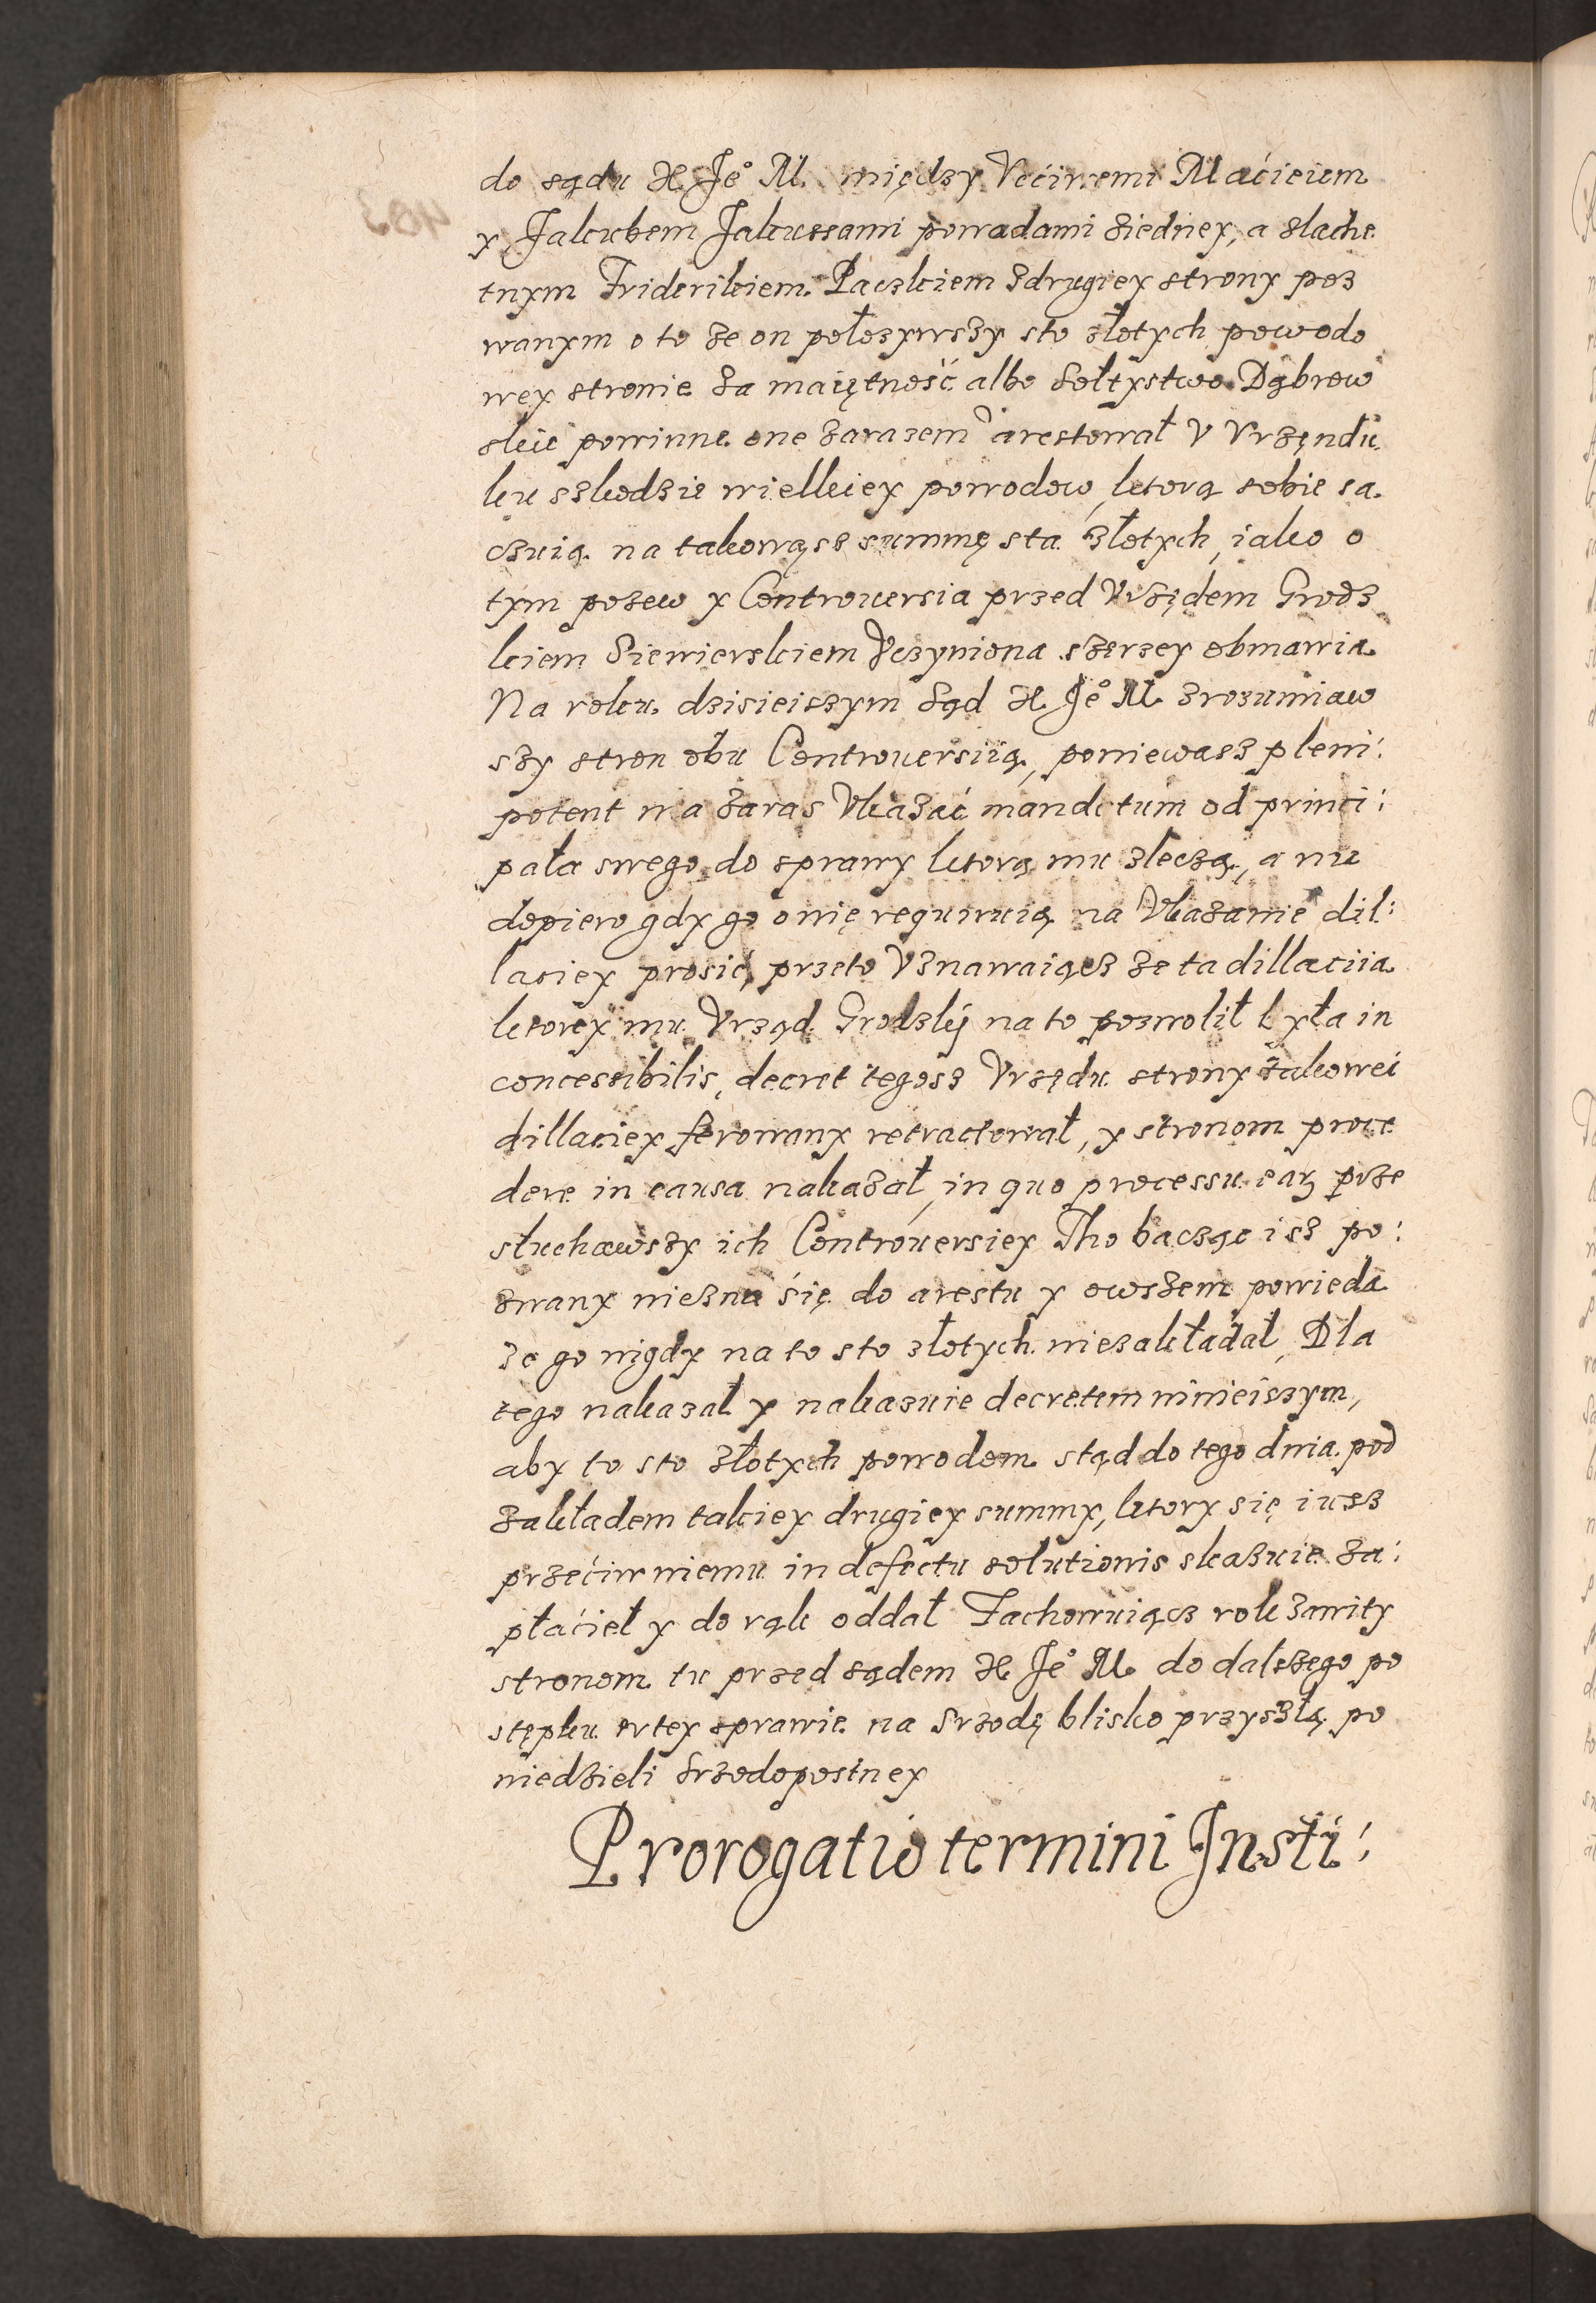 do sądu X. Je° M. między Vććiwemi Maćieiem
y Jakubem Jakussami powadami ziedney, a slache
tnym Friderikiem Paczkiem zdrugiey strony poz
wanym o to że on położywszy sto złotych powodo
wey stronie za maiętność albo sołtystwo Dąbrow
skie powinne one zarazem arestował V Vrzęndu
ku szkodzie wielkiey powodow, ktorą sobie sa
czuią na takowąsz summę sta złotych, iako o
tym pozew y Controuersia przed Vrzędem Grodz
kiem Siewierskiem Vczyniona szerzey obmawia
Na roku dzisieiszym sąd X. Je° M. zrozumiaw
szy stron obu Controuersiią, poniewasz pleni:
potent ma zaras Vkazać mandatum od princi:
pała swego do sprawy ktorą mu zleczą, a nie
dopiero gdy go onię requiruią na Vkazanie dil:
laciey prosić, przeto Vznawaiącz że ta dillaciia
ktorey mu Vrząd Grodzkj na to pozwolił była in
concessibilis, decret tegosz Vrzędu strony takowei
dillaciey ferowany retractował, y stronom proce
dere in causa nakazał, in quo processu eaꝝ prze
słuchawszy ich Controuersiey Tho bacząc isz po:
zwany niezna się do arestu y owszem powieda
że go nigdy na to sto złotych niezakładał, Dla
tego nakazał y nakazuie decretem ninieiszym,
aby to sto złotych powodom stąd do tego dnia pod
zakładem takiey drugiey summy, ktory się iusz
przećiw niemu in defectu solutionis skazuie za:
płaćieł y do rąk oddał Zachowuiącz rok zawity
stronom tu przed sądem X. Je° M. do dalszego po
stępku wtey sprawie na Srzodę blisko przyszłą po
niedzieli srzodopostney
Prorogatio termini Insti: